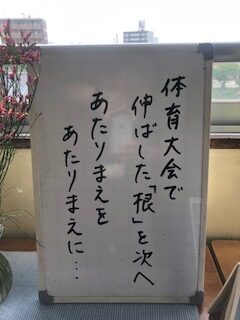 体育大会で
伸ばした「根」を次へ
あたりまえを
あたりまえに…